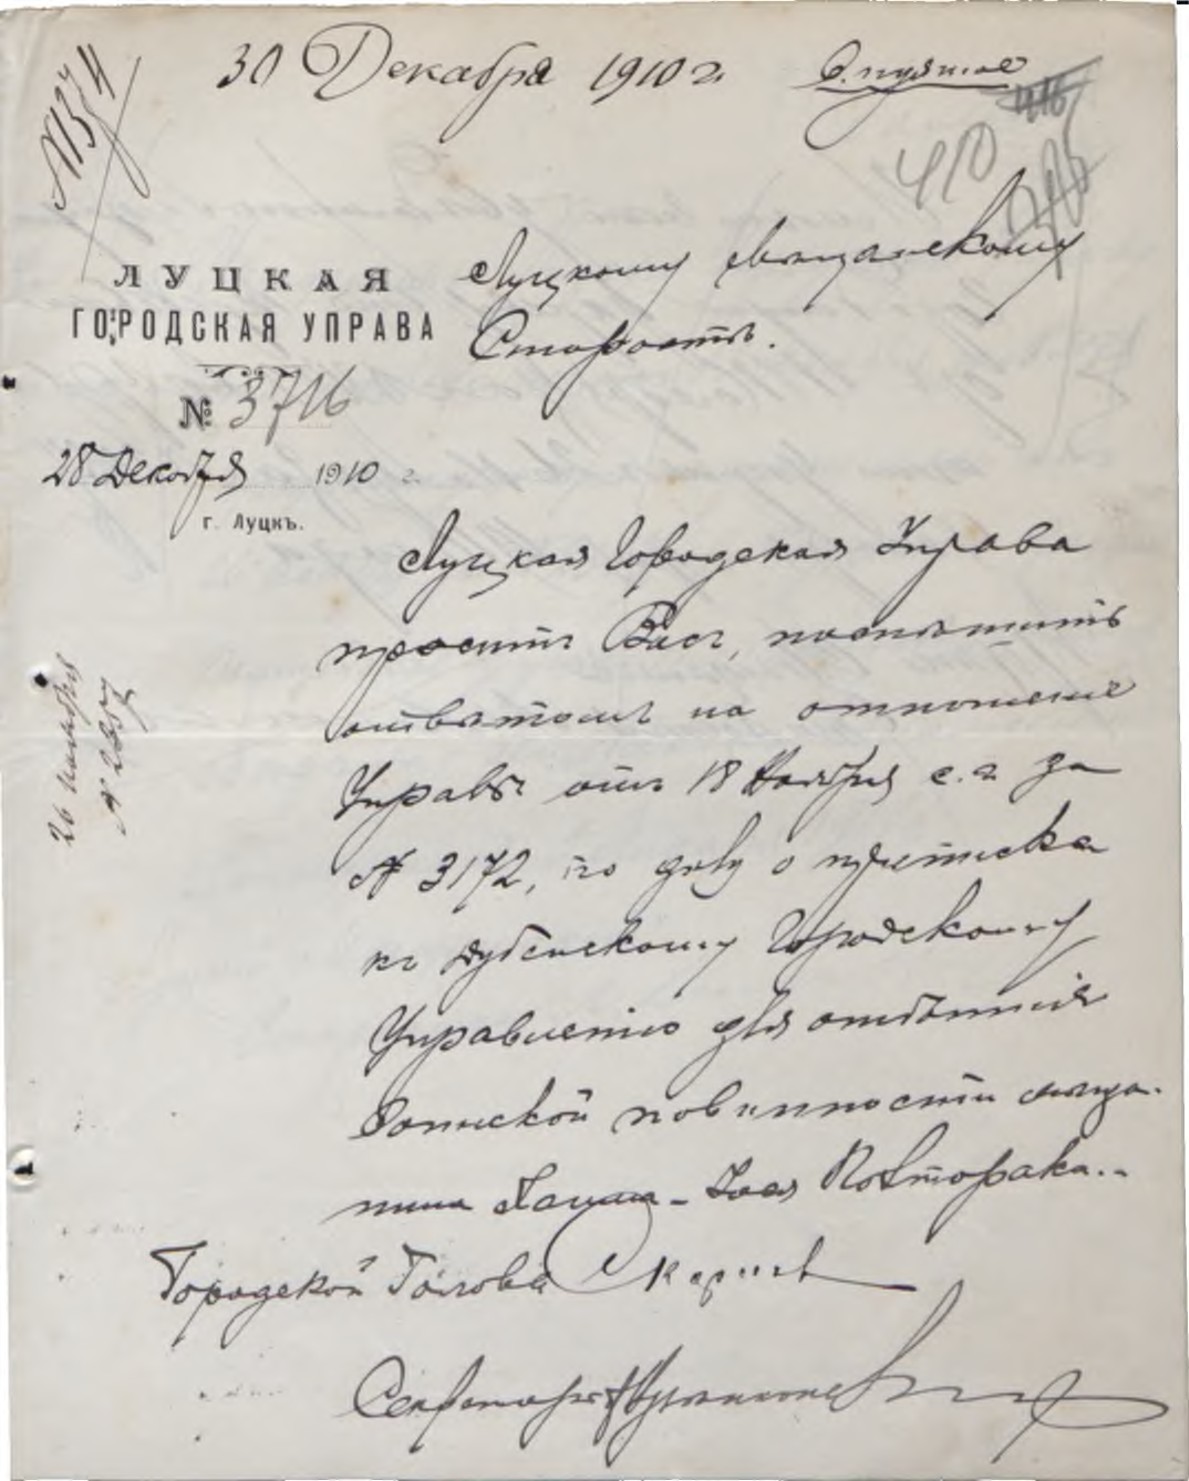 30 Декабря 1910 г.
410
ЛУЦКАЯ
ГОРОДСКАЯ УПРАВА
№ 3716
28 Декабря 1910 г.
г. Луцкъ.
Луцкому Мѣщанскому
Старостѣ.
Луцкая Городская Управа
проситъ Васъ, поспѣшить
отвѣтомъ на отношение
Управы отъ 18 Ноября с.г. за
№ 3172, по дѣлу о приписке
къ Дубенскому Городскому
Управлению для отбытия
воинской повинности мѣща-
нина Полторака.
26 ноября
Городской Голова
Секретарь